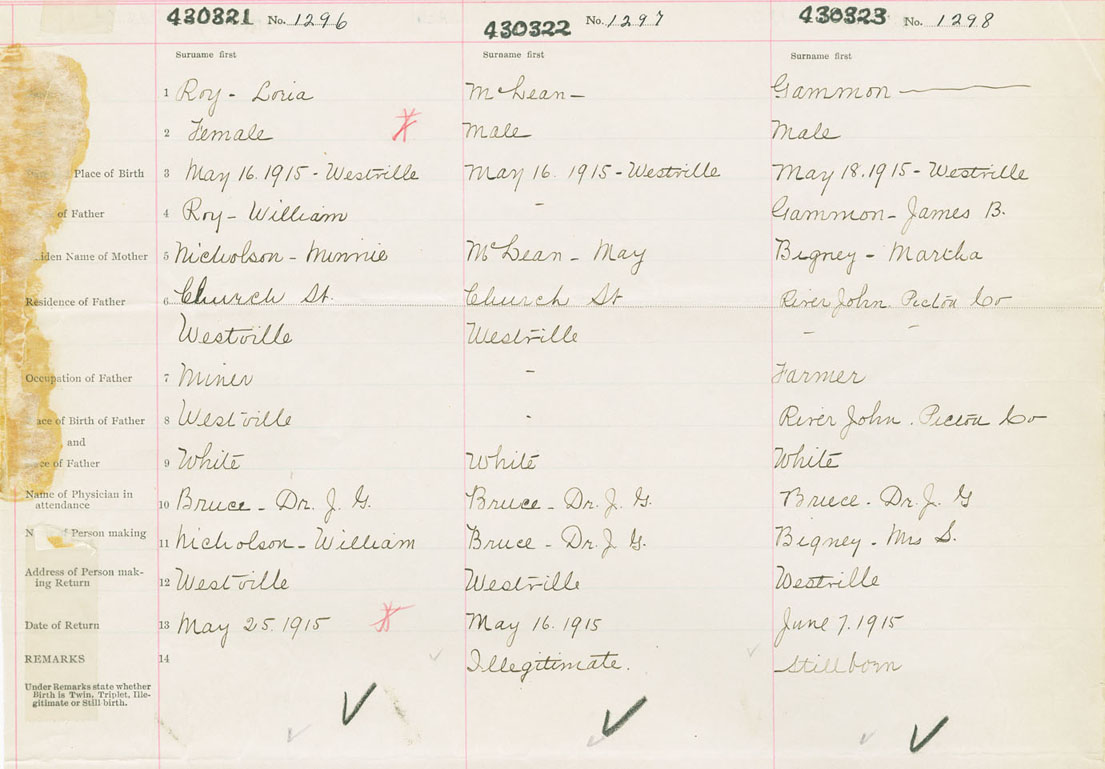 430321 No. 1296
430322 No. 1297
430323 No. 1298
Surname first Surname first Surname first
1 Roy - Loria McLean - Gammon
2 Female Male Male
Place of Birth 3 May 16. 1915 - Westville May 16. 1915 - Westville May 18. 1915 - Westville
of Father 4 Roy - William - Gammon - James B.
iden Name of Mother 5 Nicholson - Minnie McLean - May Bigney - Martha
Residence of Father 6 Church St. Church St River John Pictou Co
Westville Westville - -
Occupation of Father 7 Miner - Farmer
ace of Birth of Father 8 Westville - River John . Pictou Co
and
ce of Father 9 White White White
Name of Physician in
attendance 10 Bruce - Dr. J. G. Bruce - Dr. J. G. Bruce - Dr. J. G
N of Person making 11 Nicholson - William Bruce - Dr. J. G. Bigney - Mrs S.
Address of Person mak-
ing Return 12 Westville Westville Westville
Date of Return 13 May 25. 1915 May 16. 1915 June 7. 1915
REMARKS 14 Illegitimate. Stillborn
Under Remarks state whether
Birth is Twin, Triplet, Ille-
gitimate or Still birth.